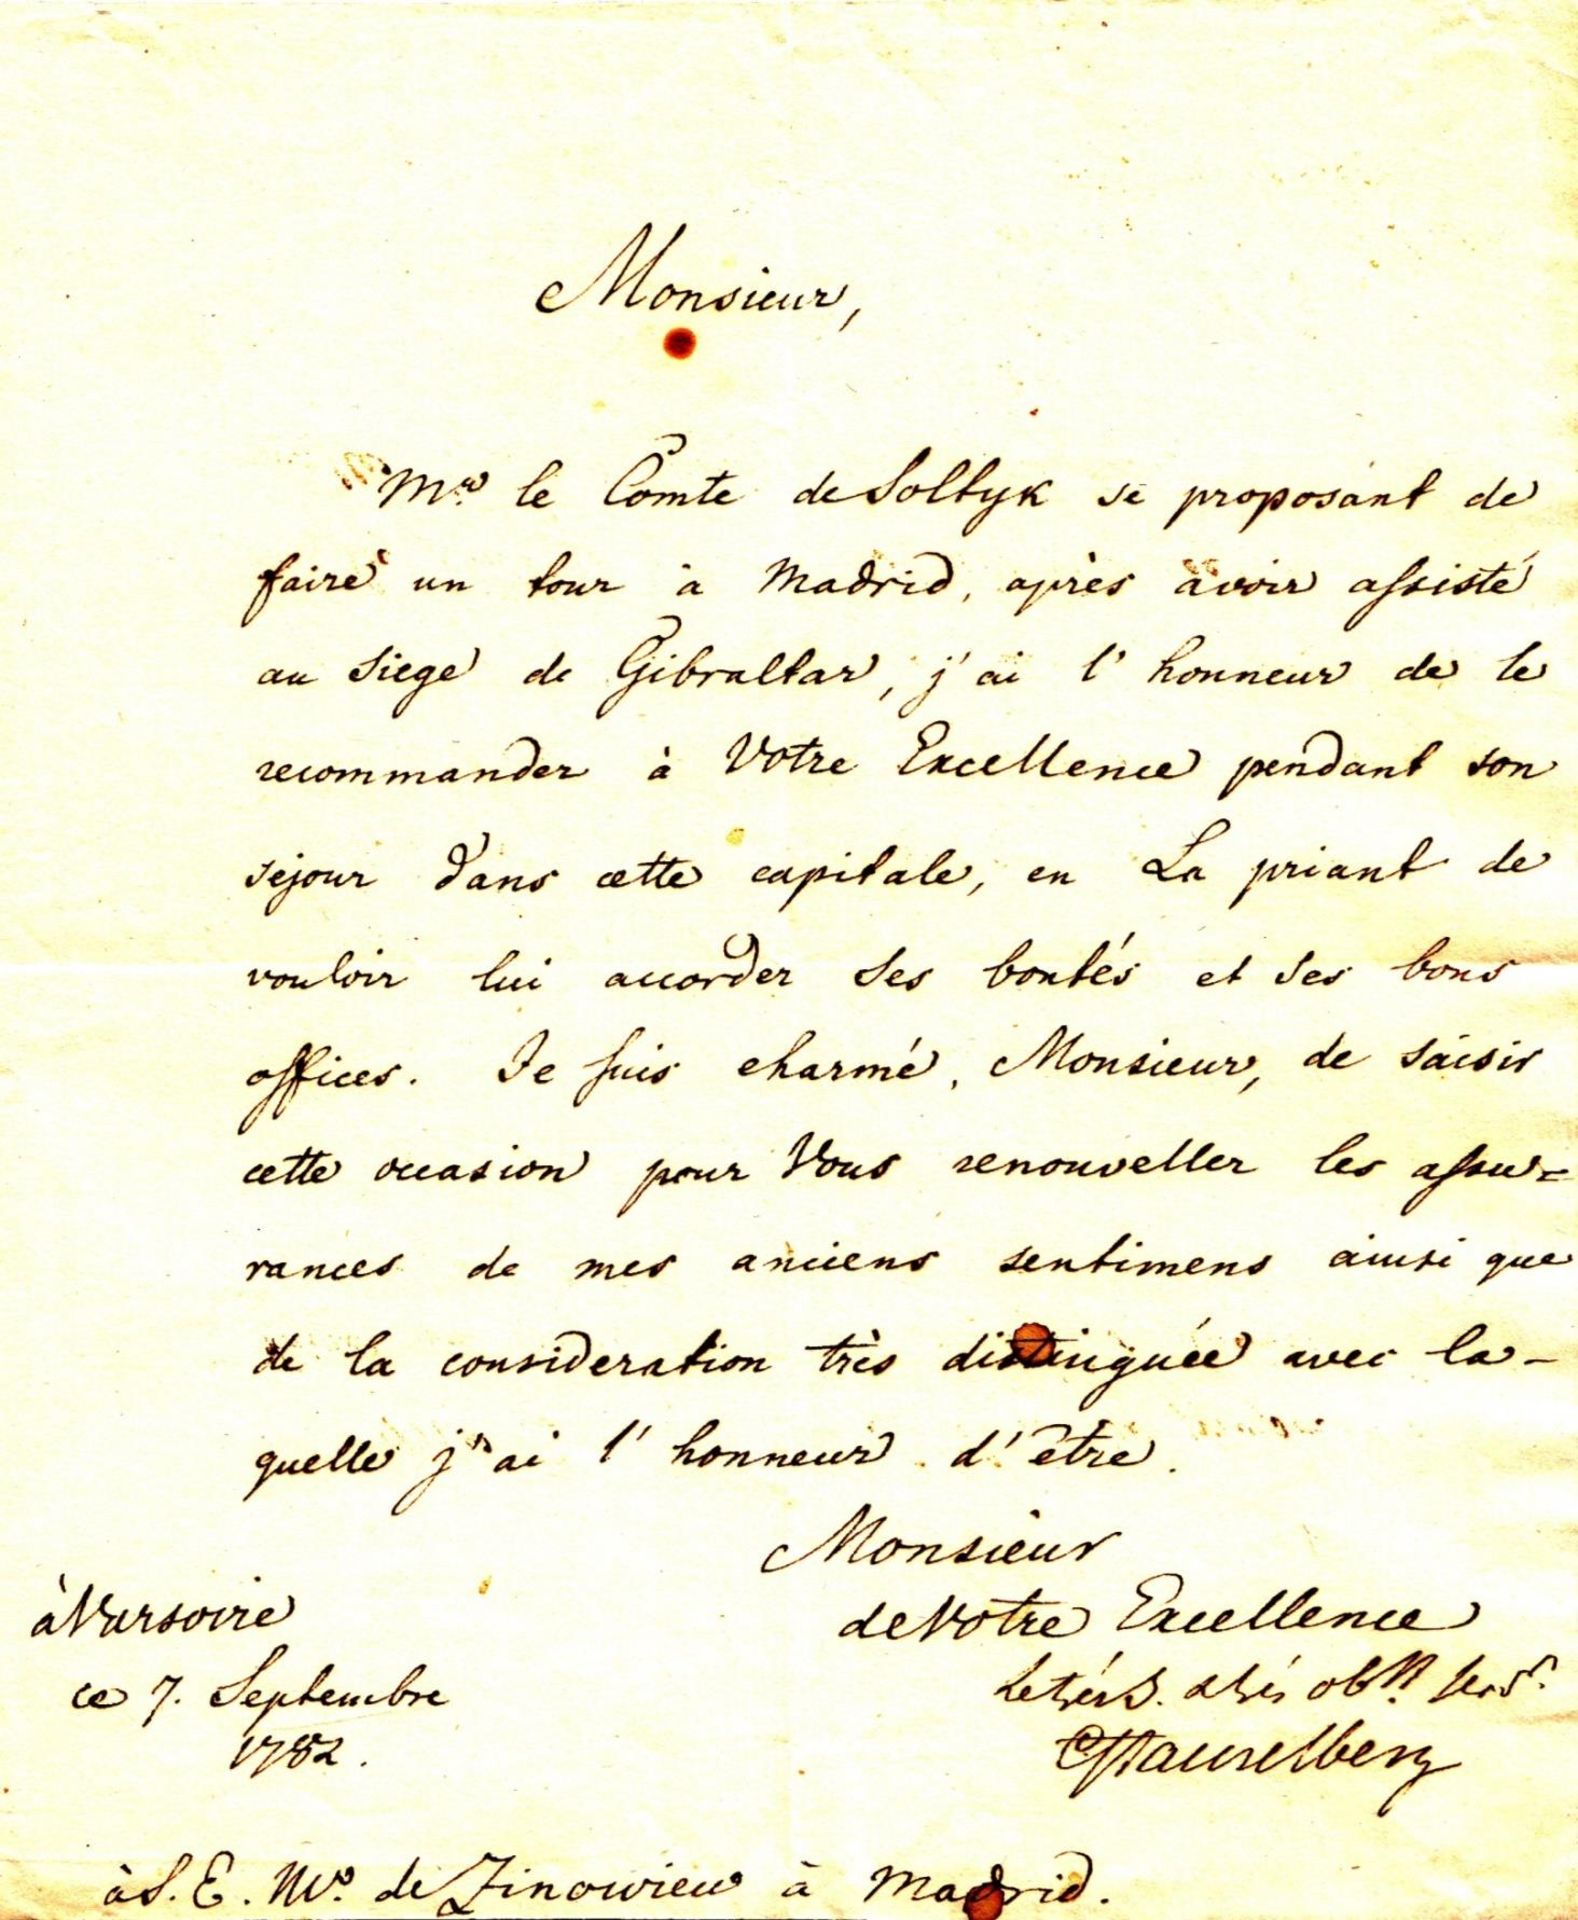 Monsieur,
Mr. le Comte de Soltyk se proposant de
faire un tour à Madrid, après avoir assisté
au Siege de Gibraltar, j'ai l'honneur de le
recommander à Votre Excellence pendant son
sejour dans cette capitale, en La priant de
vouloir lui accorder Ses bontés et Ses bons
offices. Je suis charmé, Monsieur, de saisir
cette occasion pour Vous renouveller les assu=
rances de mes anciens sentimens ainsi que
de la consideration très distinguée avec la-
quelle j'ai l'honneur d'être.
Monsieur
de Votre Excellence
à Varsovie
ce 7. Septembre
1782.
le très h. et très obt. Serv.
CStackelberg
à S. E. Mr. de Zinowiew à Madrid.